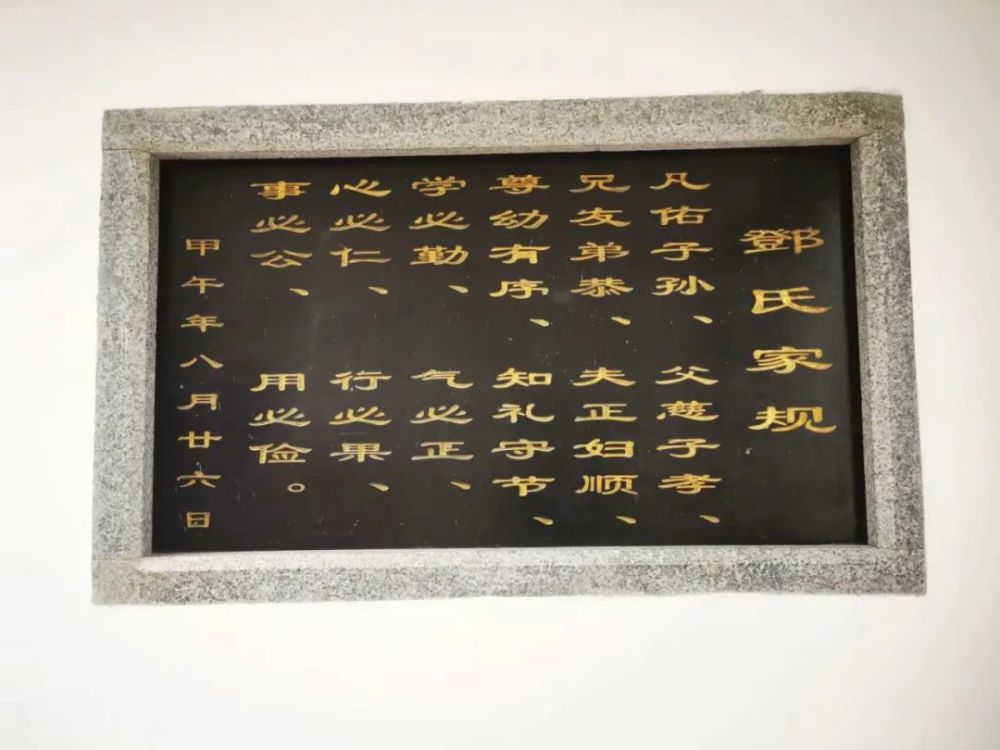 鄧氏家规
凡佑子孙、父慈子孝、
兄友弟恭、夫正妇顺、
尊幼有序、知礼守节、
学必勤、气必正、
心必仁、行必果、
事必公、用必俭。
甲午年八月廿六日